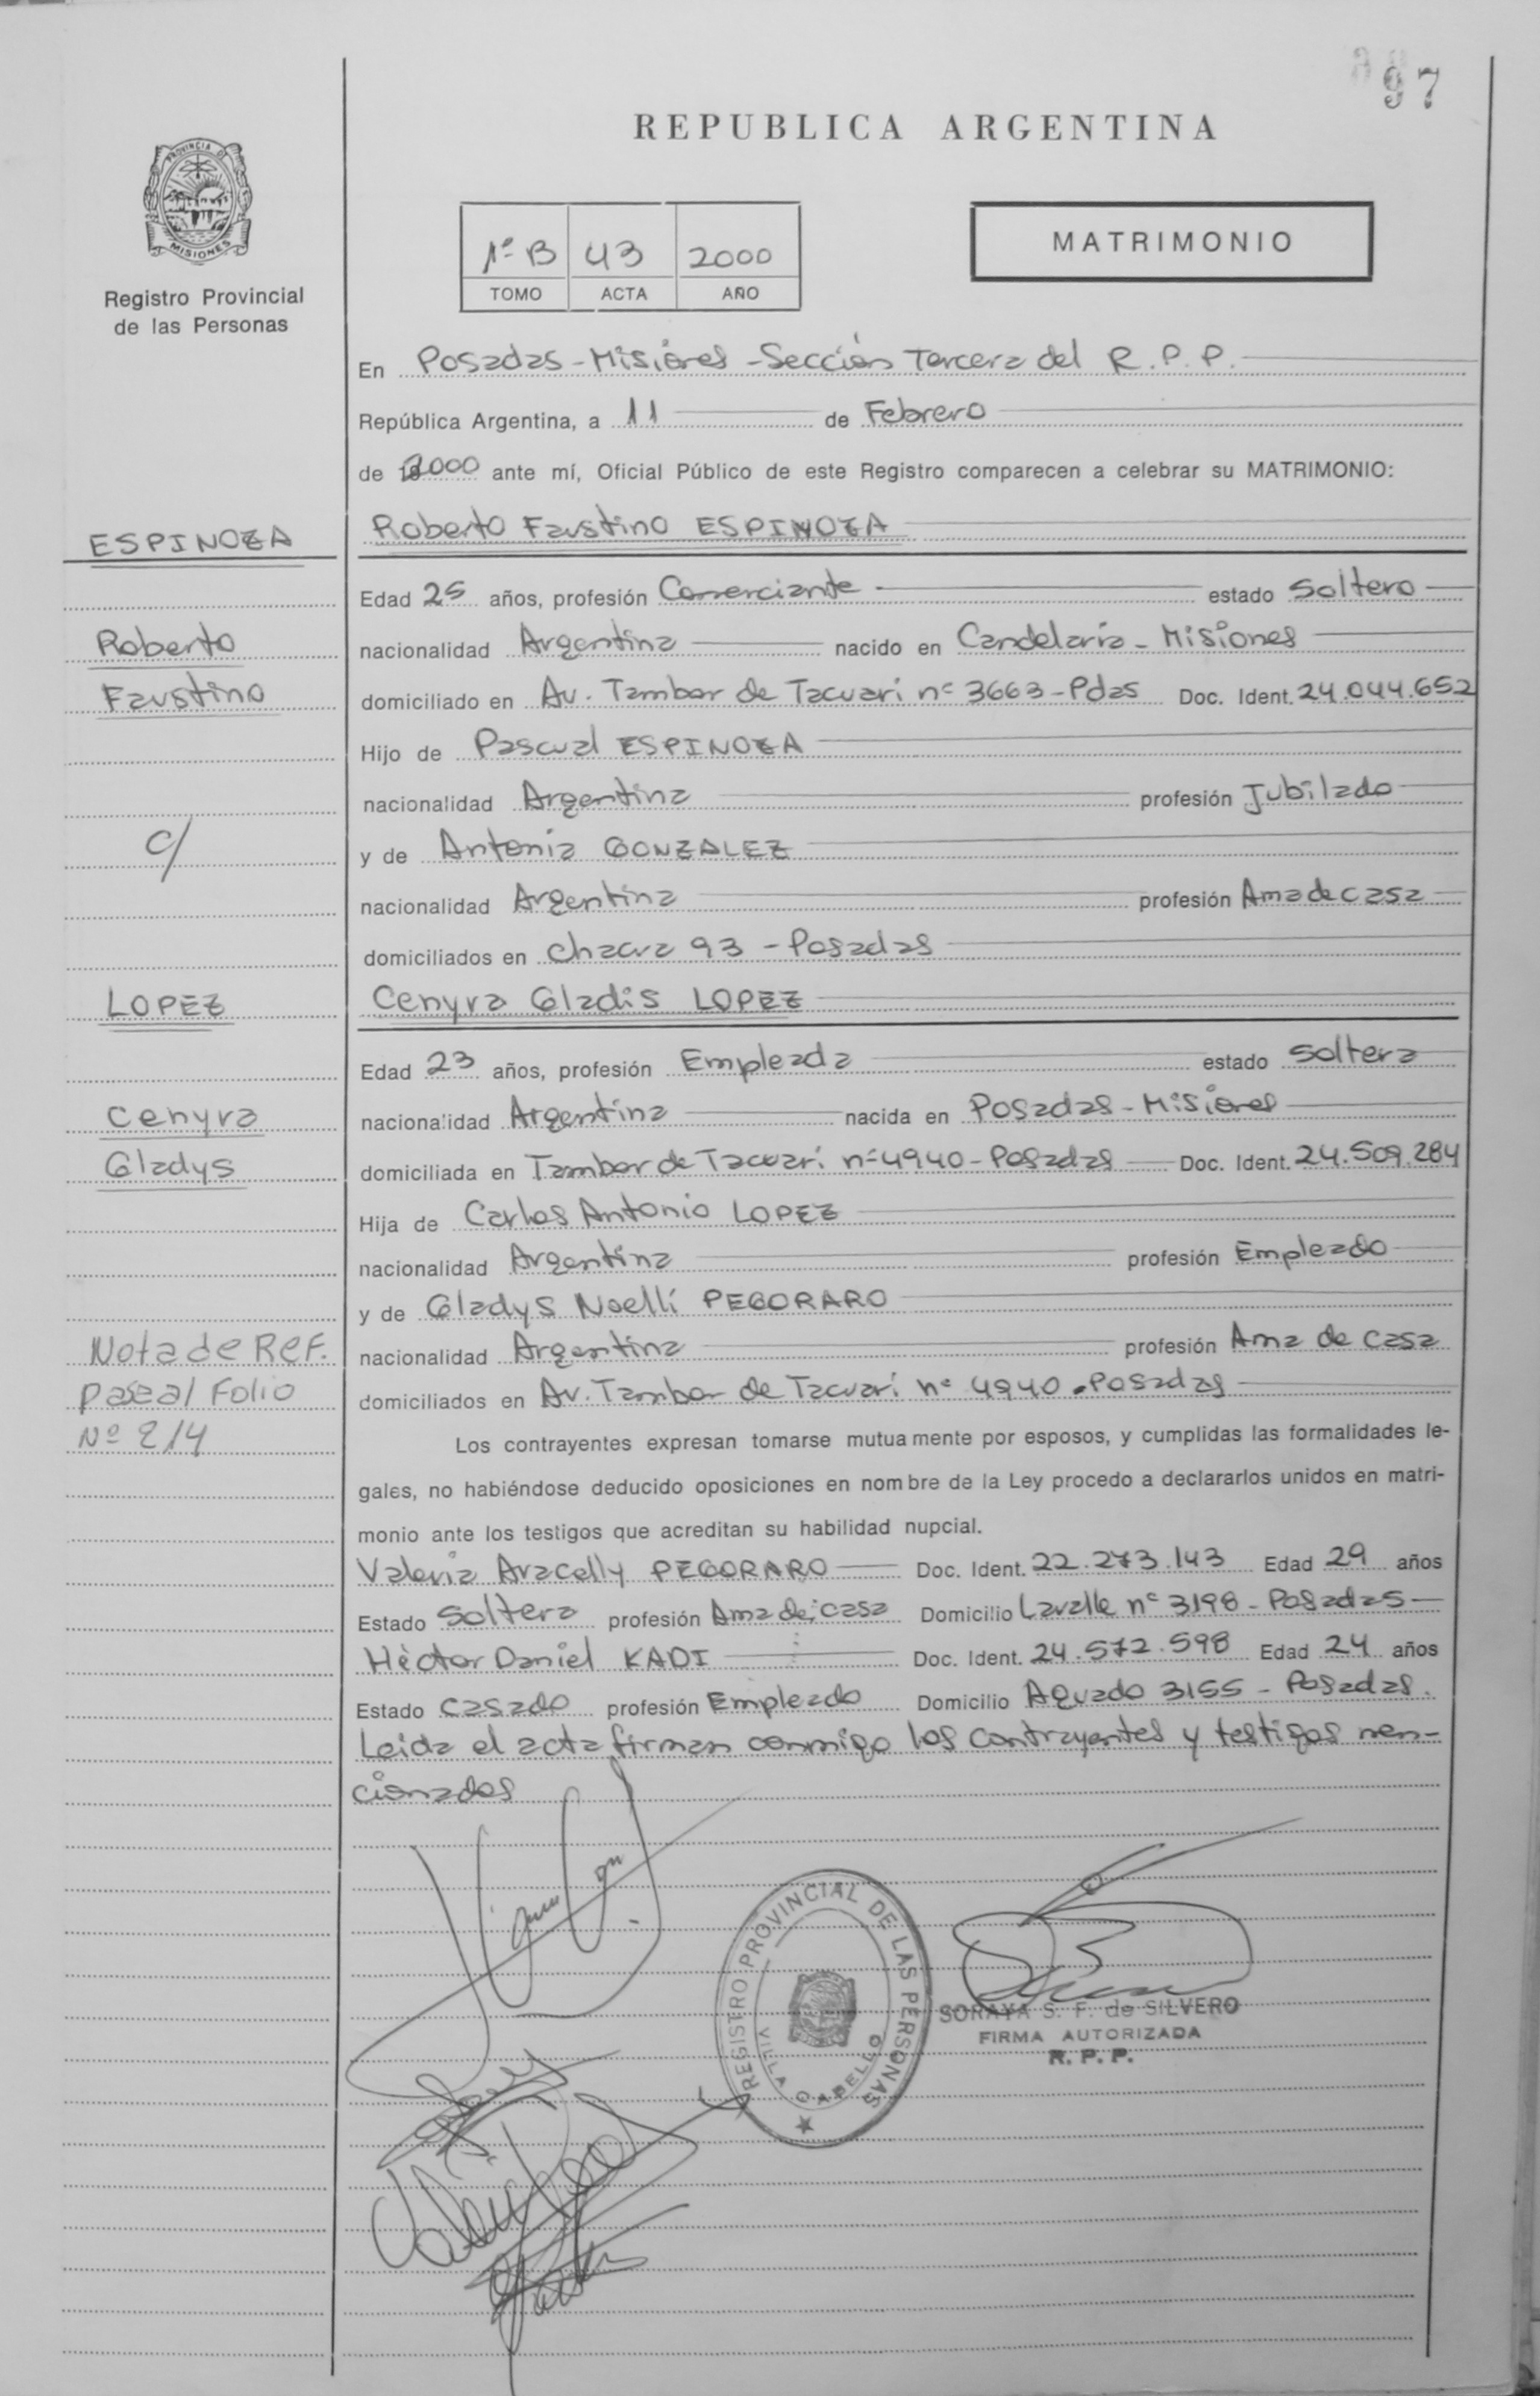 97
REPUBLICA ARGENTINA
PROVINCIA DE
MISIONES
Registro Provincial
de las Personas
1º B 43 2000
TOMO ACTA AÑO
MATRIMONIO
En Posadas-Misiones-Sección Tercera del R.P.P.
República Argentina, a 11 de Febrero
de 2000 ante mí, Oficial Público de este Registro comparecen a celebrar su MATRIMONIO:
ESPINOZA
Roberto Faustino ESPINOZA
Edad 25 años, profesión Comerciante estado Soltero
Roberto
nacionalidad Argentina nacido en Candelaria-Misiones
Faustino
domiciliado en Av. Tambor de Tacuarí nº 3663-Pdas Doc. Ident. 24.044.652
Hijo de Pascual ESPINOZA
nacionalidad Argentina profesión Jubilado
c/
y de Antonia GONZALEZ
nacionalidad Argentina profesión Ama de casa
domiciliados en Chacra 93 - Posadas
LOPEZ
Cenyra Gladis LOPEZ
Edad 23 años, profesión Empleada estado soltera
Cenyra
nacionalidad Argentina nacida en Posadas-Misiones
Gladys
domiciliada en Tambor de Tacuarí nº 4940-Posadas Doc. Ident. 24.509.284
Hija de Carlos Antonio LOPEZ
nacionalidad Argentina profesión Empleado
y de Gladys Noelli PEGORARO
Nota de Ref.
nacionalidad Argentina profesión Ama de casa
pasa al Folio
domiciliados en Av. Tambor de Tacuarí nº 4940-Posadas
Nº 214
Los contrayentes expresan tomarse mutuamente por esposos, y cumplidas las formalidades le-
gales, no habiéndose deducido oposiciones en nombre de la Ley procedo a declararlos unidos en matri-
monio ante los testigos que acreditan su habilidad nupcial.
Valeria Aracelly PEGORARO Doc. Ident. 22.273.143 Edad 29 años
Estado Soltera profesión Ama de casa Domicilio Lavalle nº 3198-Posadas
Hèctor Daniel KADI Doc. Ident. 24.572.598 Edad 24 años
Estado casado profesión Empleado Domicilio Aguado 3155 - Posadas.
Leida el acta firman conmigo los contrayentes y testigos men-
cionados
REGISTRO PROVINCIAL DE LAS PERSONAS
VILLA CABELLO
SORAYA S. F. de SILVERO
FIRMA AUTORIZADA
R. P. P.